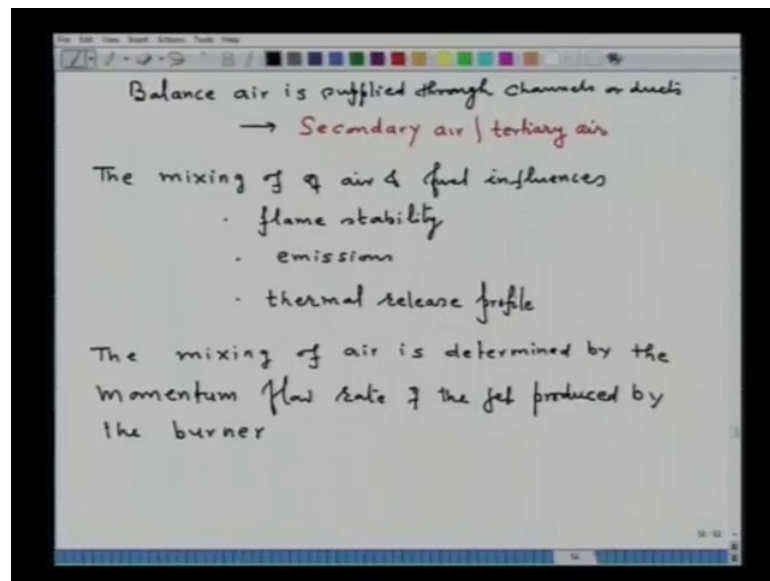 File Edit View Insert Actions Tools Help
Balance air is supplied through channels or ducts
→ Secondary air | tertiary air
The mixing of of air & fuel influences
· flame stability
· emissions
· thermal release profile
The mixing of air is determined by the
momentum flow rate of the jet produced by
the burner